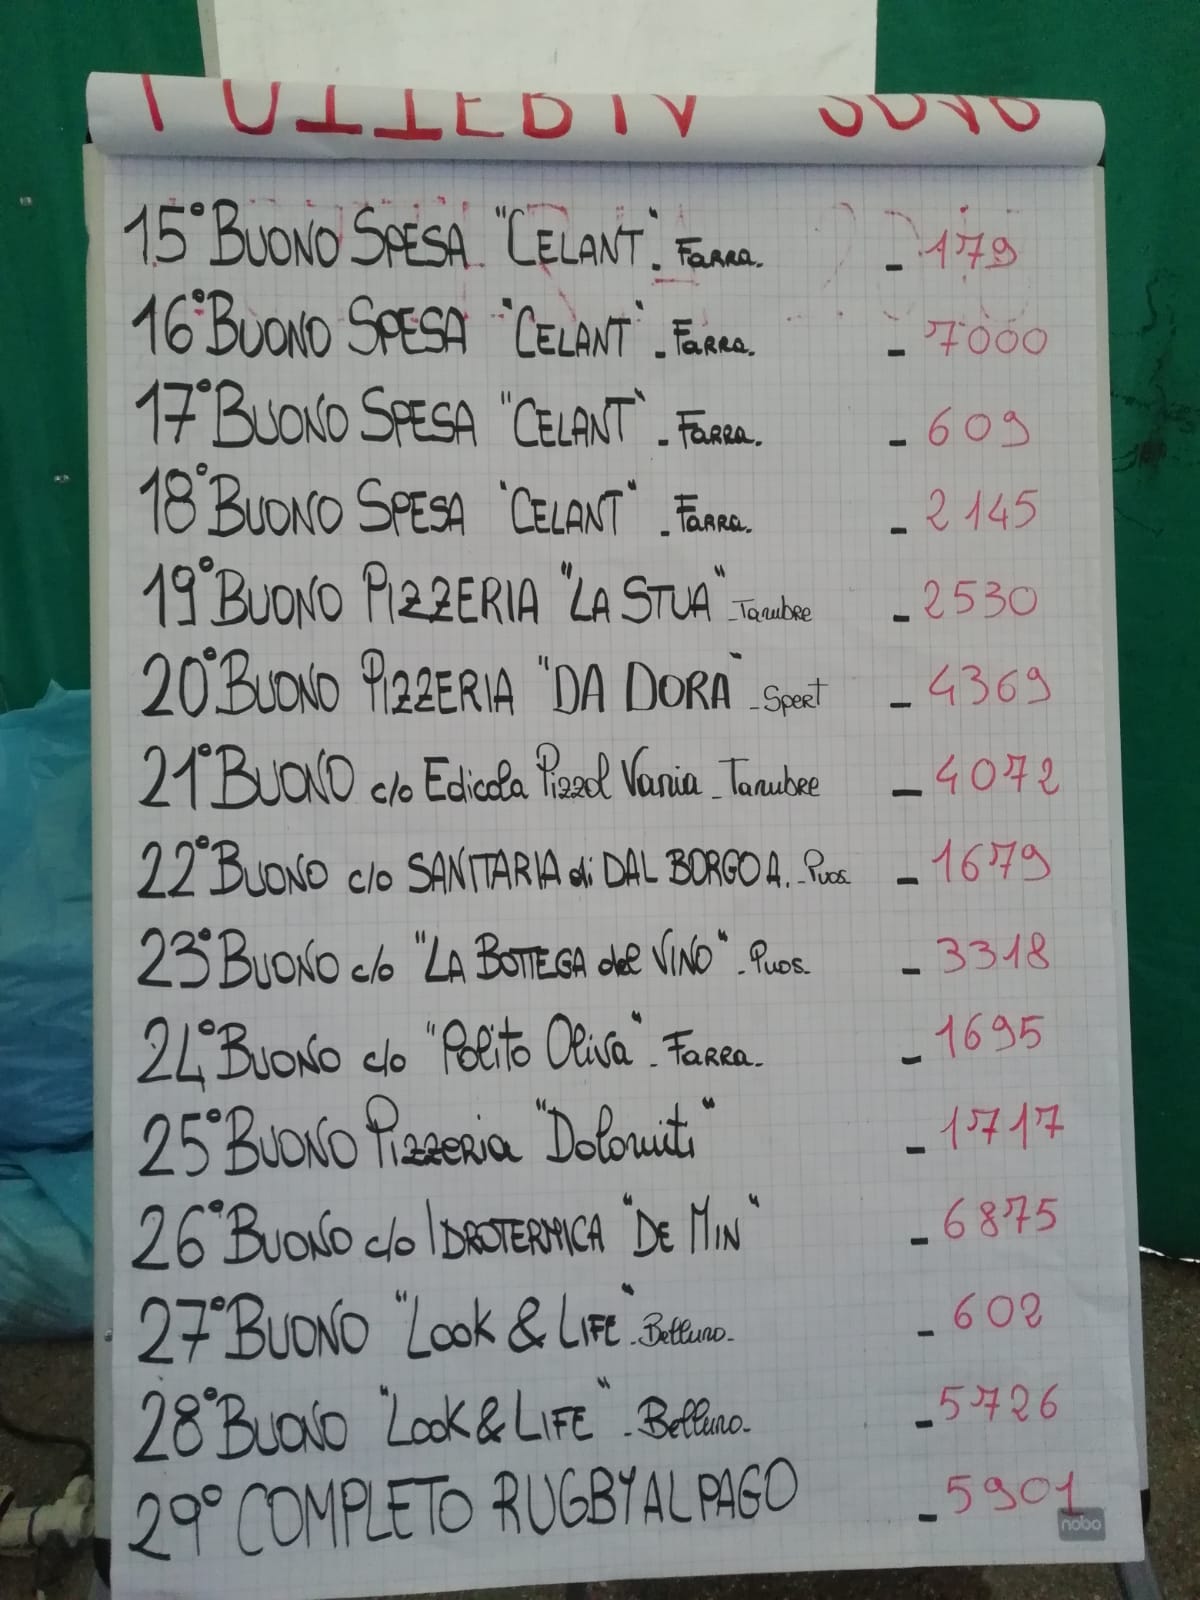 15° BUONO SPESA "CELANT". FARRA. - 179
16° BUONO SPESA "CELANT" - FARRA. - 7000
17° BUONO SPESA "CELANT" - FARRA. - 609
18° BUONO SPESA "CELANT" - FARRA. - 2145
19° BUONO PIZZERIA "LA STUA" - Tambre - 2530
20° BUONO PIZZERIA "DA DORA" - Spert - 4369
21° BUONO c/o Edicola Pizzol Vania - Tambre - 4072
22° BUONO c/o SANITARIA di DAL BORGO A. - Puos. - 1679
23° BUONO c/o "LA BOTTEGA del VINO" - Puos. - 3318
24° BUONO c/o "Polito Oliva" - FARRA. - 1695
25° BUONO Pizzeria "Dolomiti" - 1717
26° BUONO c/o IDROTERMICA "DE MIN" - 6875
27° BUONO "Look & LIFE" - Belluno. - 602
28° BUONO "Look & LIFE" - Belluno. - 5726
29° COMPLETO RUGBY ALPAGO - 5901
nobo